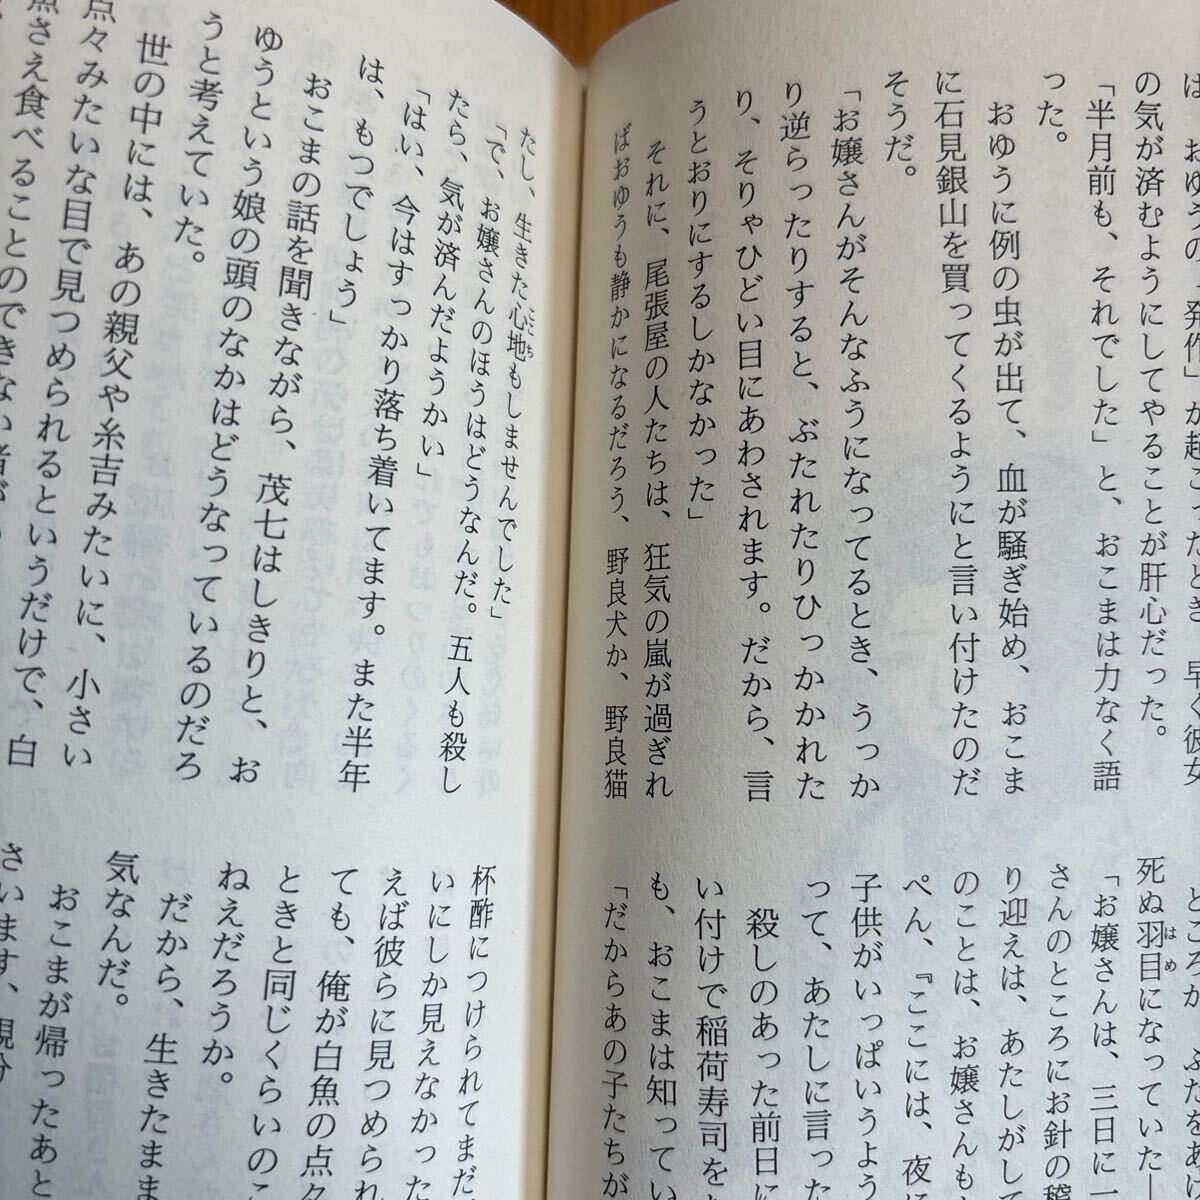 は、おゆうの「発作」が起こったとき、早く彼女
の気が済むようにしてやることが肝心だった。
「半月前も、それでした」と、おこまは力なく語
った。
おゆうに例の虫が出て、血が騒ぎ始め、おこま
に石見銀山を買ってくるようにと言い付けたのだ
そうだ。
「お嬢さんがそんなふうになってるとき、うっか
り逆らったりすると、ぶたれたりひっかかれた
り、そりゃひどい目にあわされます。だから、言
うとおりにするしかなかった」
それに、尾張屋の人たちは、狂気の嵐が過ぎれ
ばおゆうも静かになるだろう、野良犬か、野良猫
ところが、ふたをあけ
死ぬ羽目になっていた―
「お嬢さんは、三日に一
さんのところにお針の稽
り迎えは、あたしがして
のことは、お嬢さんも
ぺん、『ここには、夜に
子供がいっぱいうよう
って、あたしに言った
殺しのあった前日に
い付けで稲荷寿司を
も、おこまは知ってい
「だからあの子たちが
たし、生きた心地もしませんでした」
「で、お嬢さんのほうはどうなんだ。五人も殺し
たら、気が済んだようかい」
「はい、今はすっかり落ち着いてます。また半年
は、もつでしょう」
おこまの話を聞きながら、茂七はしきりと、お
ゆうという娘の頭のなかはどうなっているのだろ
うと考えていた。
世の中には、あの親父や糸吉みたいに、小さい
点々みたいな目で見つめられるというだけで、白
魚さえ食べることのできない者が
杯酢につけられてまだ
いにしか見えなかった
えば彼らに見つめられ
ても、俺が白魚の点々
ときと同じくらいのこ
ねえだろうか。
だから、生きたまま
気なんだ。
おこまが帰ったあと
さいます、親分